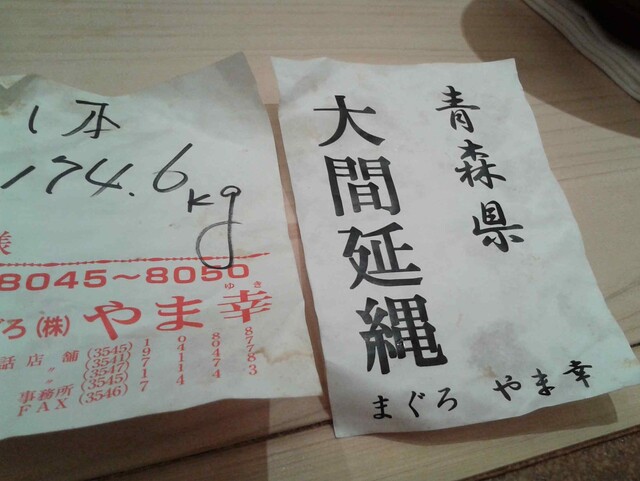 1本
174.6kg
様
8045～8050
ぐろ(株)やま幸
ゆき
話店舗(3545)
〃(3541)
〃(3547)
〃(3545)
事務所
FAX(3546)
青森県
大間延縄
まぐろ やま幸